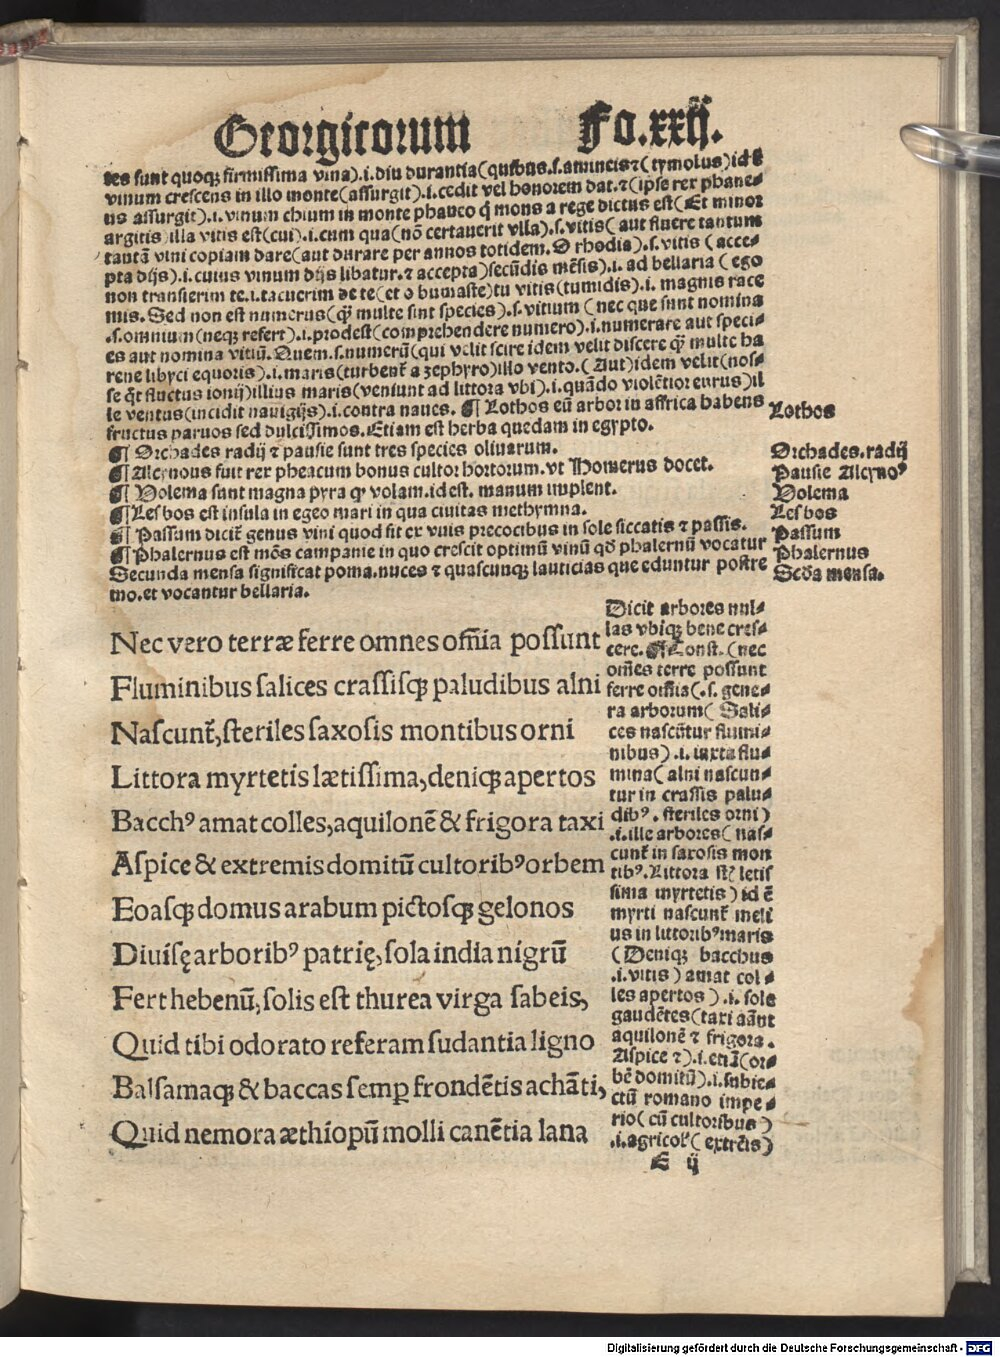 Georgicorum Fo.xxij.
tes sunt quoqȝ firmissima vina).i.diu durantia(quibus.s.amineis ⁊(tymolus)id ē
vinum crescens in illo monte(assurgit).i.cedit vel honorem dat.⁊(ipse rex phane⸗
us assurgit).i.vinum chium in monte phaneo q̄ mons a rege dictus est(Et minor
argitis)illa vitis est(cui).i.cum qua(nō certauerit vlla).s.vitis(aut fluere tantum
tantā vini copiam dare(aut durare per annos totidem. O rhodia).s.vitis(acce⸗
pta dijs).i.cuius vinum dijs libatur.⁊ accepta)secūdis mēsis).i.ad bellaria(ego
non transierim te.i.tacuerim de te(et o bumaste)tu vitis(tumidis).i. magnis race
mis. Sed non est numerus(qȝ multe sint species).s.vitium(nec que sunt nomina
.s.omnium(neqȝ refert).i.prodest(comprehendere numero).i.numerare aut speci⸗
es aut nomina vitiū. Quem.s.numerū(qui velit scire idem velit discere qȝ multe ha
rene libyci equoris).i.maris(turbent̄ a zephyro)illo vento.(Aut)idem velit(nos⸗
se q̄t fluctus ionij)illius maris(veniunt ad littora vbi).i.quādo violētior eurus)il
le ventus(incidit nauigijs).i.contra naues. ¶ Lothos eū arbor in affrica habens
fructus paruos sed dulcissimos. Etiam est herba quedam in egypto.
Lothos
¶ Orchades radij ⁊ pausie sunt tres species oliuarum.
Orchades.radij
¶ Alcynous fuit rex pheacum bonus cultor hortorum.vt Homerus docet.
Pausie Alcynoꝰ
¶ Volema sunt magna pyra qȝ volam.id est. manum implent.
Volema
¶ Lesbos est insula in egeo mari in qua ciuitas methymna.
Lesbos
¶ Passum dicit̄ genus vini quod fit ex vuis precocibus in sole siccatis ⁊ passis.
Passum
¶ Phalernus est mōs campanie in quo crescit optimū vinū qđ phalernū vocatur
Phalernus
Secunda mensa significat poma.nuces ⁊ quascunqȝ lauticias que eduntur postre
Scđa mensa.
mo.et vocantur bellaria.
Nec vero terræ ferre omnes om̄ia possunt
Fluminibus salices crassisqȝ paludibus alni
Nascunt̄,steriles saxosis montibus orni
Littora myrtetis lætissima,deniqȝ apertos
Bacchꝰ amat colles,aquilonē & frigora taxi
Aspice & extremis domitū cultoribꝰ orbem
Eoasqȝ domus arabum pictosqȝ gelonos
Diuisę arboribꝰ patrię,sola india nigrū
Fert hebenū,solis est thurea virga sabeis,
Quid tibi odorato referam sudantia ligno
Balsamaqȝ & baccas semꝑ frondētis achāti,
Quid nemora æthiopū molli canētia lana
Dicit arbores nul⸗
las vbiqȝ bene cres⸗
cere. ¶ Const.(nec
om̄es terre possunt
ferre om̄ia(.s.gene⸗
ra arborum(Sali⸗
ces nascūtur flumi⸗
nibus).i.iuxta flu⸗
mina(alni nascun⸗
tur in crassis palu⸗
dibꝰ. steriles orni)
.i.ille arbores(nas⸗
cunt̄ in saxosis mon
tibꝰ. Littora st̄ letis
sima myrtetis)id ē
myrti nascunt̄ meli
us in littoribꝰ maris
(Deniqȝ bacchus
.i.vitis)amat col⸗
les apertos).i.sole
gaudētes(taxi amāt
aquilonē ⁊ frigora.
Aspice ⁊).i.etiā(or⸗
bē domitū).i.subie⸗
ctū romano impe⸗
rio(cū cultoribus)
.i.agricol̄(extrēis)
E ij
Digitalisierung gefördert durch die Deutsche Forschungsgemeinschaft - DFG